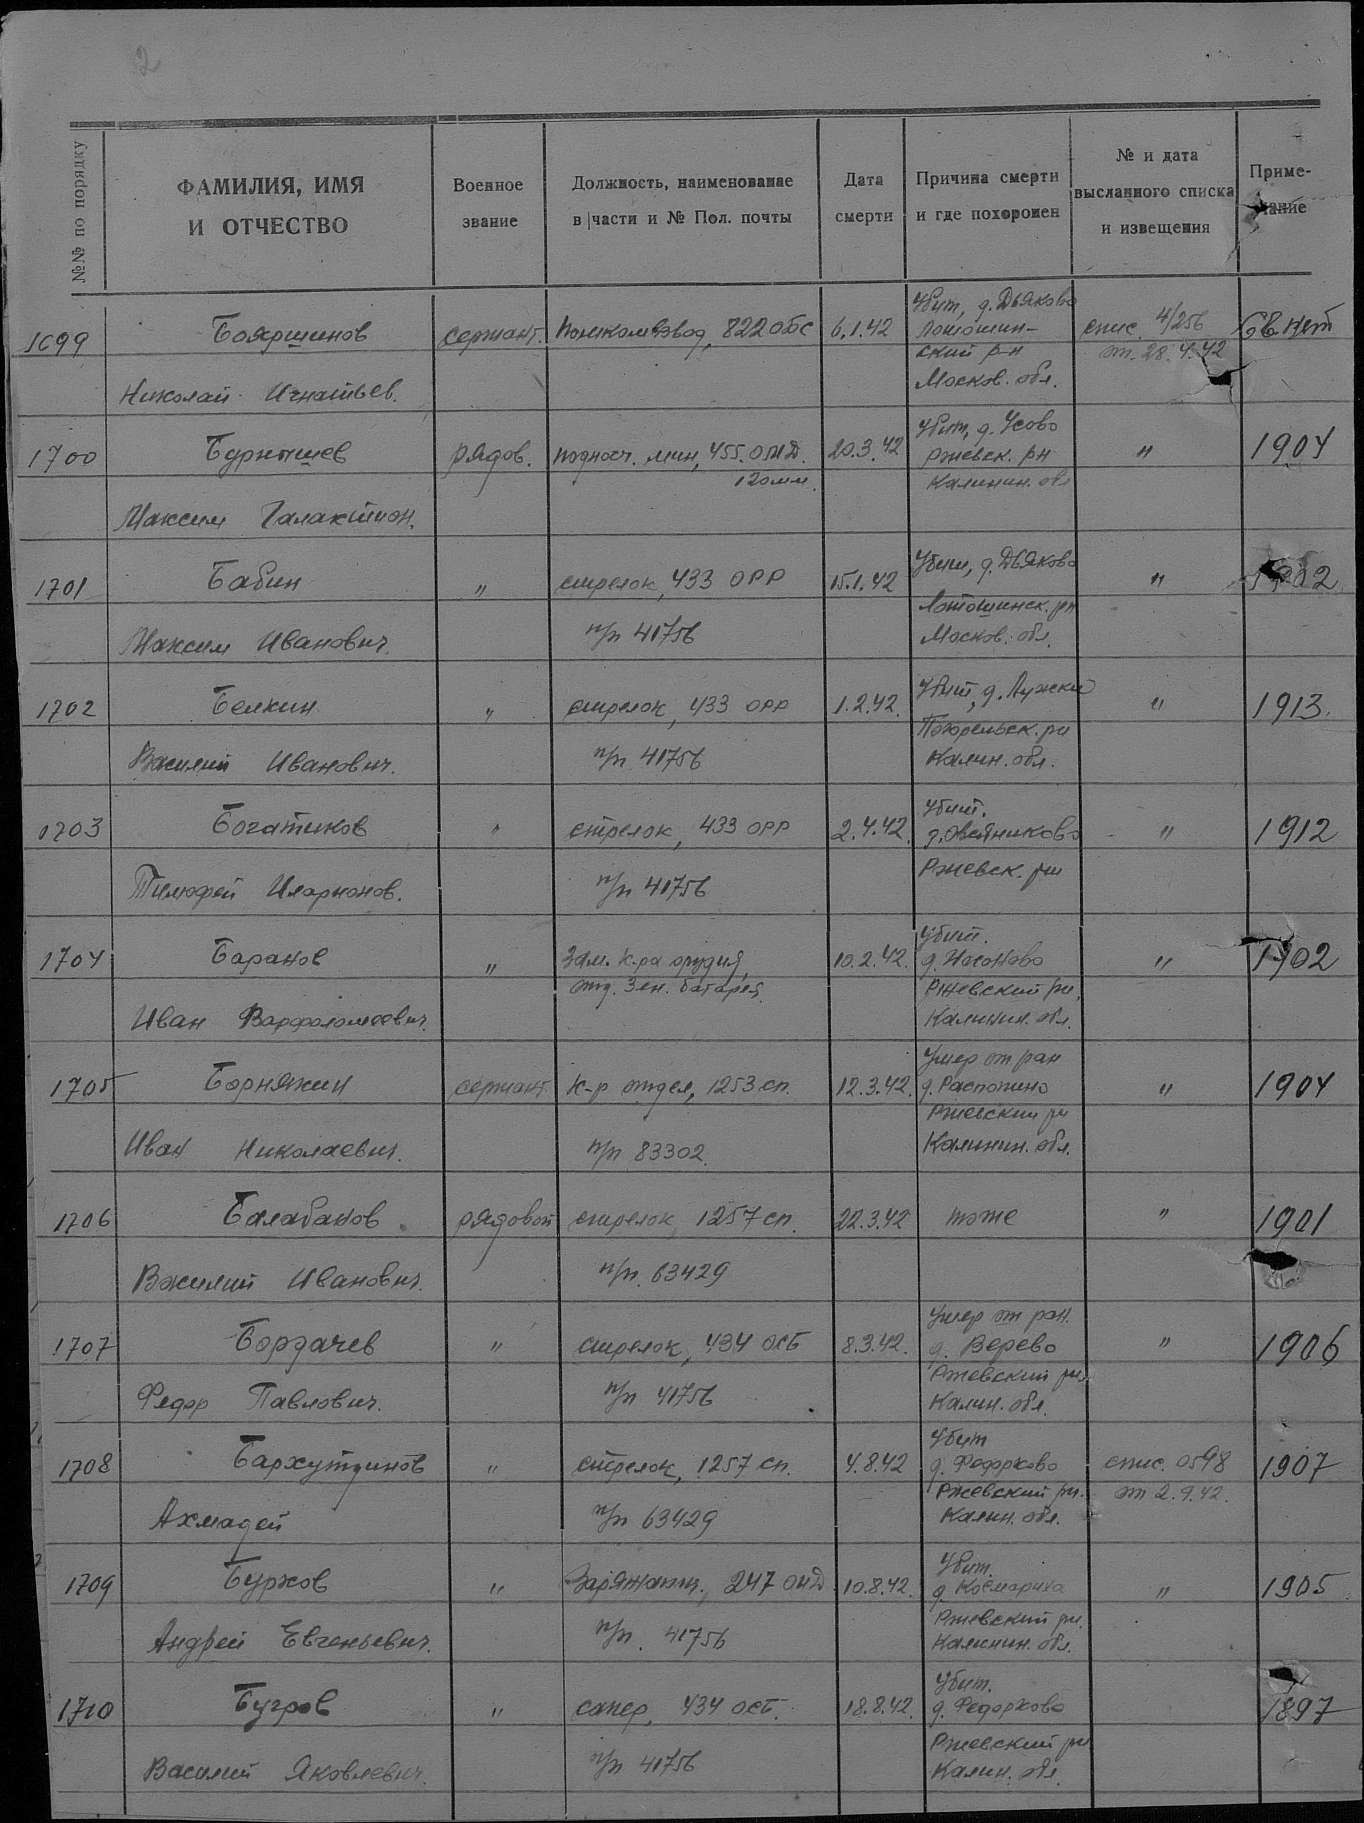 2
№№ по порядку
ФАМИЛИЯ, ИМЯ
И ОТЧЕСТВО
Военное
звание
Должность, наименование
в части и № Пол. почты
Дата
смерти
Причина смерти
и где похоронен
№ и дата
высланного списка
и извещения
Приме-
чание
1699 Бояршинов сержант. помкомвзвод, 822 обс 6.1.42 Убит, д. Дьяково спис. 4/256 св. нет
Лотошин-
ский р-н от. 28.4.42
Николай Игнатьев. Москов. обл.
1700 Бурнышев рядов. поднось. мин, 455. ОМД. 20.3.42 Убит, д. Усово " 1904
120мм. Ржевск. рн
Калинин. обл
Максим Галактион.
1701 Бабин " стрелок, 433 ОРР 15.1.42 Убит, д. Дьяково " 1902
Лотошинск. рн
Максим Иванович. п/п 41756 Москов. обл.
1702 Белкин " стрелок, 433 ОРР 1.2.42. Убит, д. Лужки " 1913.
Погорельск. рн
Василий Иванович. п/п 41756 Калин. обл.
1703 Богатиков " стрелок, 433 ОРР 2.4.42. Убит. " 1912
д. Овсянниково
Тимофей Иларионов. п/п 41756 Ржевск. рн
1704 Баранов " Зам. к-ра орудия, 10.2.42. Убит. " 1902
отд. Зен. батарея. д. Носоново
Ржевский рн,
Иван Варфоломеевич. Калинин. обл.
1705 Борняжин сержант к-р отдел, 1253 сп. 12.3.42. Умер от ран " 1904
д. Распопино
Ржевский рн
Иван Николаевич. п/п 83302. Калинин. обл.
1706 Балабанов рядовой стрелок 1257 сп. 22.3.42 тоже " 1901
Василий Иванович. п/п. 63429
1707 Бордачев " стрелок, 434 ОСБ 8.3.42. Умер от ран. " 1906
д. Верево
Ржевский рн.
Федор Павлович. п/п 41756 Калин. обл.
1708 Бархутдинов " стрелок, 1257 сп. 4.8.42 Убит спис. 0598 1907
д. Федорково
Ржевский рн. от 2.9.42.
Ахмадей п/п 63429 Калин. обл.
1709 Бурков " Заряжающ., 247 ОИД 10.8.42. Убит. " 1905
д. Космариха
Ржевский рн.
Андрей Евгеньевич. п/п. 41756 Калинин. обл.
1710 Бугров " сапер, 434 ОСБ. 18.8.42. Убит. 1897
д. Федорково
Ржевский рн
Василий Яковлевич. п/п 41756 Калин. обл.